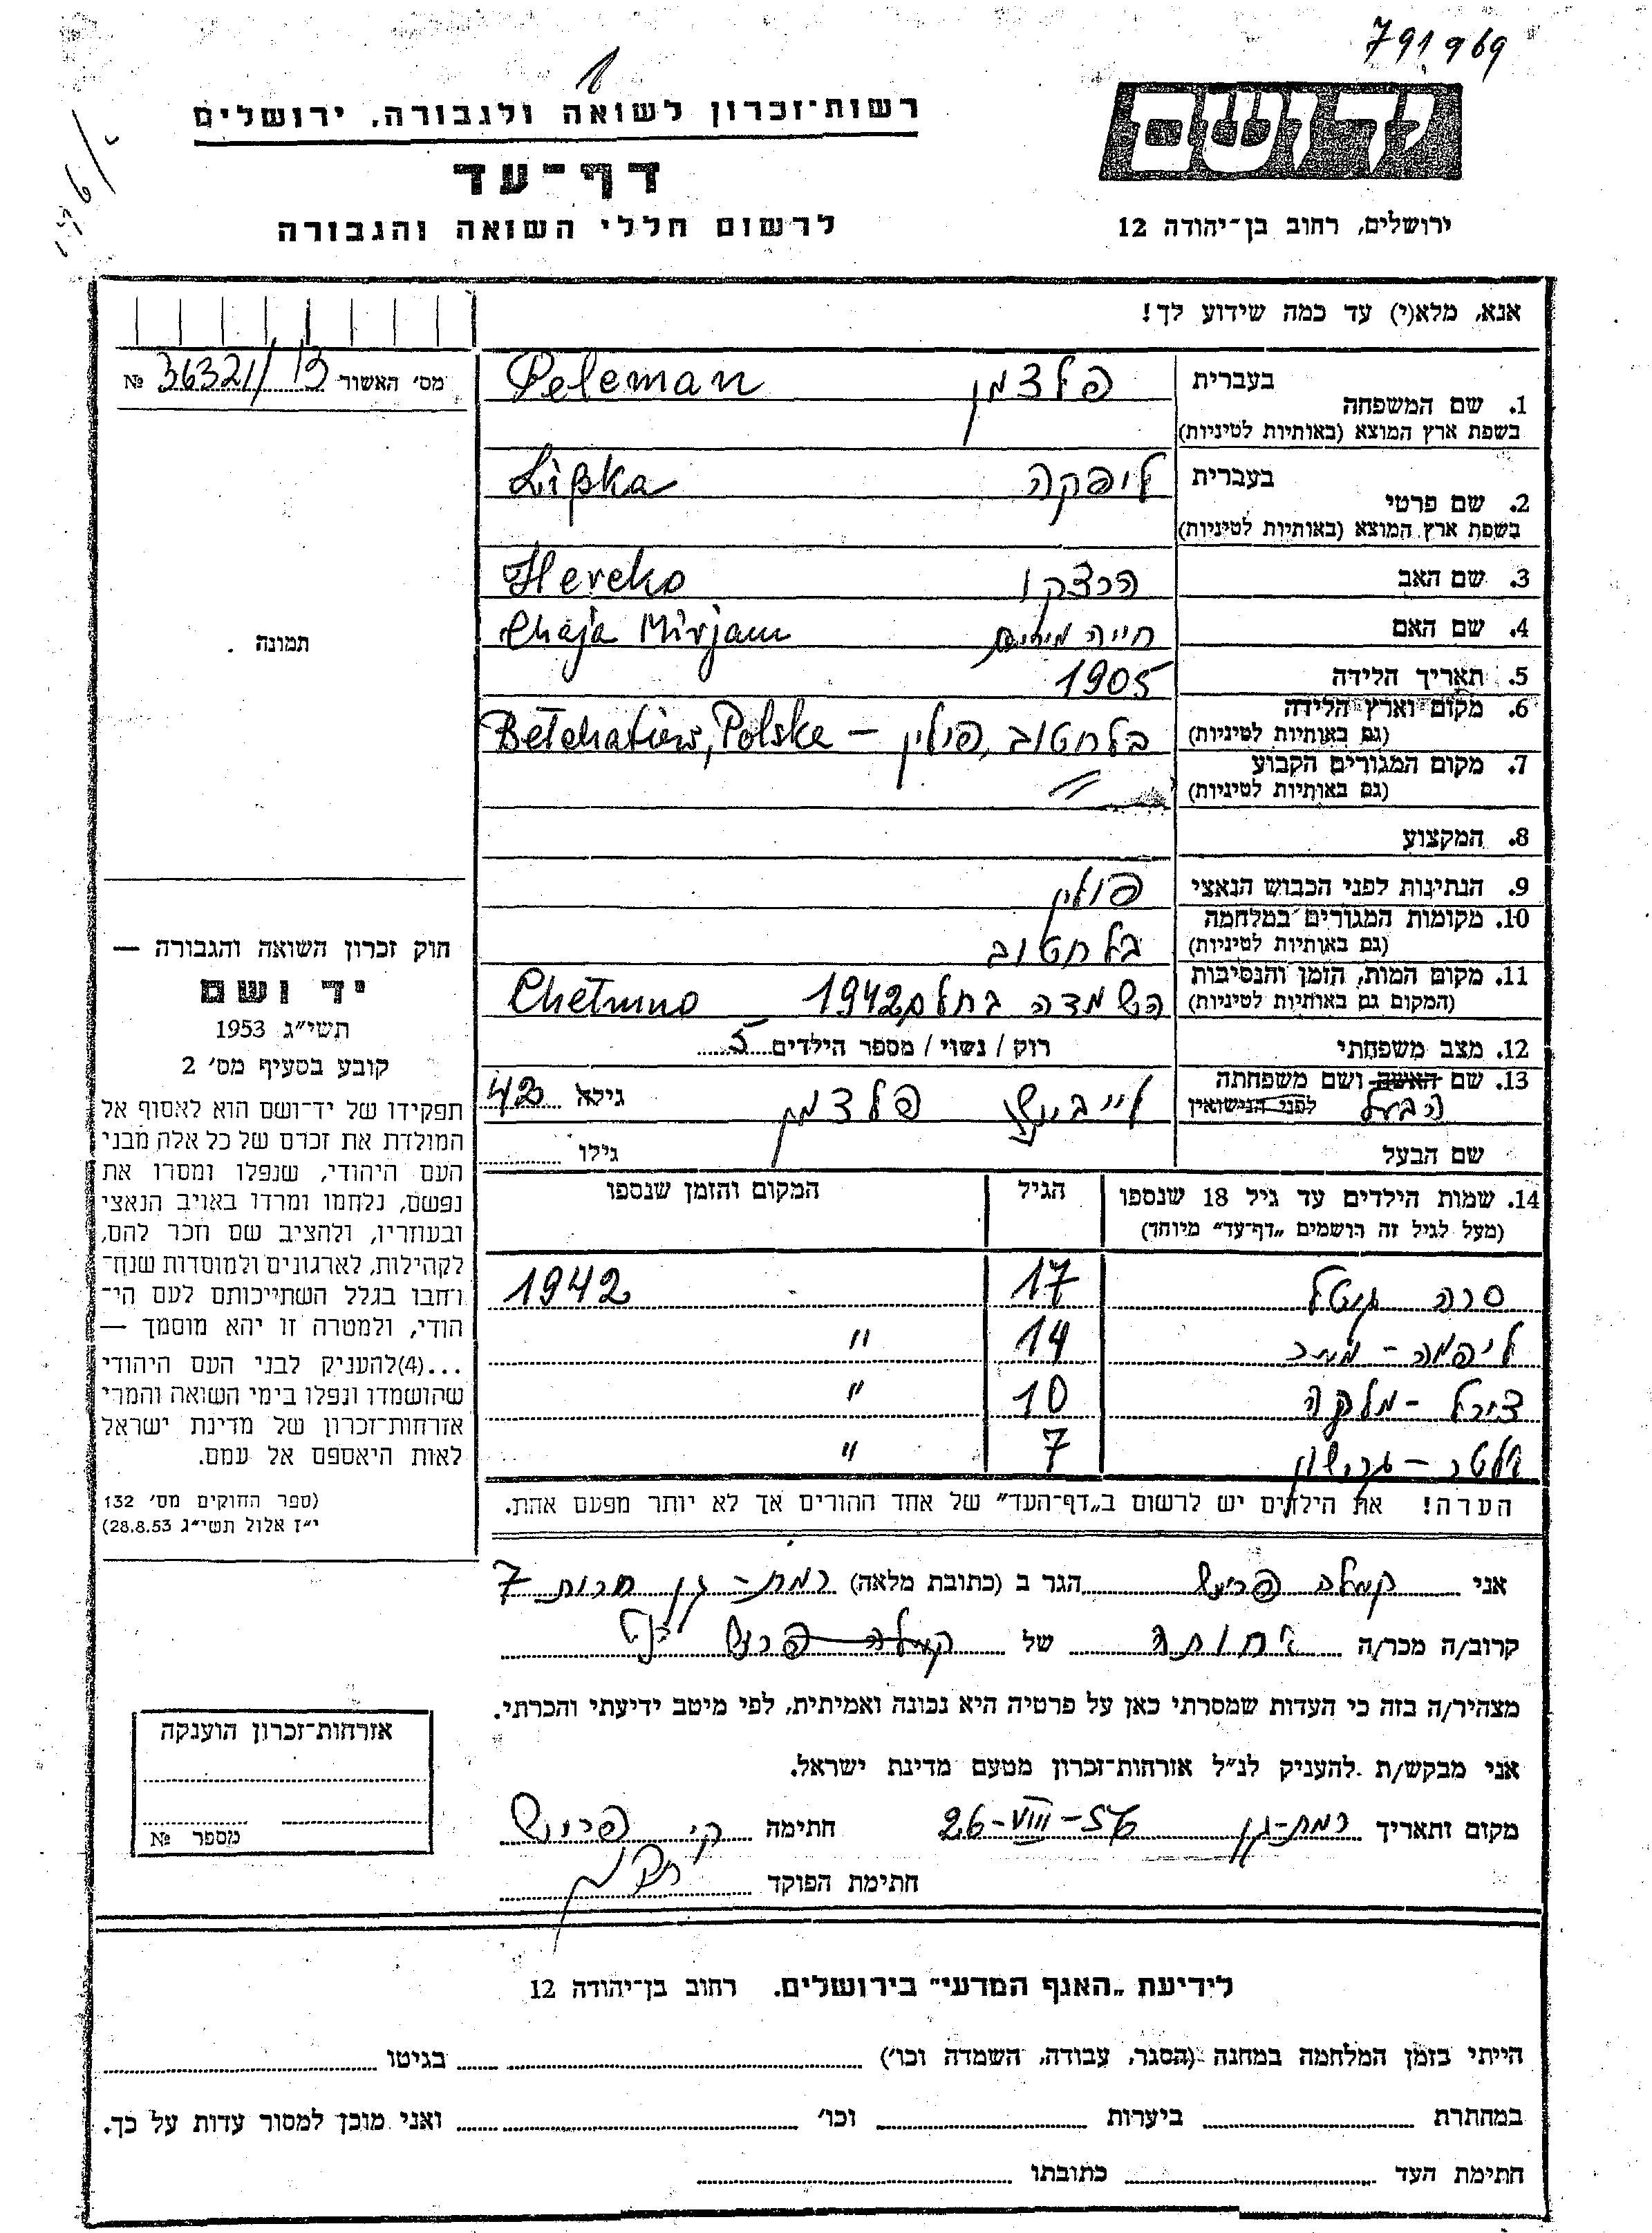 791969
1
רשות־זכרון לשואה ולגבורה, ירושלים
יד ושם
דף־עד
לרשום חללי השואה והגבורה
ירושלים, רחוב בן־יהודה 12
אנא, מלא(י) עד כמה שידוע לך!
מס׳ האשור № 36321/
1. שם המשפחה בעברית פלצמן Pelcman
בשפת ארץ המוצא (באותיות לטיניות)
2. שם פרטי בעברית ליפקה Lipka
בשפת ארץ המוצא (באותיות לטיניות)
3. שם האב הרצקו Hercko
4. שם האם חייה מירים Chaja Mirjam
5. תאריך הלידה 1905
6. מקום וארץ הלידה (גם באותיות לטיניות) בלחטוב, פולין – Bełchatów, Polska
7. מקום המגורים הקבוע (גם באותיות לטיניות) 〃
8. המקצוע
9. הנתינות לפני הכבוש הנאצי פולין
10. מקומות המגורים במלחמה (גם באותיות לטיניות) בלחטוב
11. מקום המות, הזמן והנסיבות (המקום גם באותיות לטיניות) השמדה בחלם, 1942 Chełmno
12. מצב משפחתי רוק / נשוי / מספר הילדים 5
13. שם האשה ושם משפחתה לפני הנישואין הבעל לייביש פלצמן גילא 42
שם הבעל גילו
14. שמות הילדים עד גיל 18 שנספו הגיל המקום והזמן שנספו
(מעל לגיל זה רושמים „דף־עד״ מיוחד)
סרה גיטל 17 1942
14 〃
צירל - מלקה 10 〃
גרשון 7 〃
הערה! את הילדים יש לרשום ב„דף־העד״ של אחד ההורים אך לא יותר מפעם אחת.
תמונה
חוק זכרון השואה והגבורה —
יד ושם
תשי״ג 1953
קובע בסעיף מס׳ 2
תפקידו של יד־ושם הוא לאסוף אל
המולדת את זכרם של כל אלה מבני
העם היהודי, שנפלו ומסרו את
נפשם, נלחמו ומרדו באויב הנאצי
ובעוזריו, ולהציב שם וזכר להם,
לקהילות, לארגונים ולמוסדות שנח־
רחבו בגלל השתייכותם לעם הי־
הודי, ולמטרה זו יהא מוסמך —
...(4)להעניק לבני העם היהודי
שהושמדו ונפלו בימי השואה והמרי
אזרחות־זכרון של מדינת ישראל
לאות היאספם אל עמם.
(ספר החוקים מס׳ 132
י״ז אלול תשי״ג 28.8.53)
אני פרוש הגר ב (כתובת מלאה) רמת-גן חרות 7
קרוב/ה מכר/ה אחותה של
מצהיר/ה בזה כי העדות שמסרתי כאן על פרטיה היא נכונה ואמיתית, לפי מיטב ידיעתי והכרתי.
אני מבקש/ת להעניק לנ״ל אזרחות־זכרון מטעם מדינת ישראל.
מקום ותאריך רמת-גן 26-VIII-56 חתימה ק׳ פרוש
חתימת הפוקד
אזרחות־זכרון הוענקה
מספר №
לידיעת „האגף המדעי״ בירושלים. רחוב בן־יהודה 12
הייתי בזמן המלחמה במחנה (הסגר, עבודה, השמדה וכו׳) בגיטו
במחתרת ביערות וכו׳ ואני מוכן למסור עדות על כך.
חתימת העד כתובתו